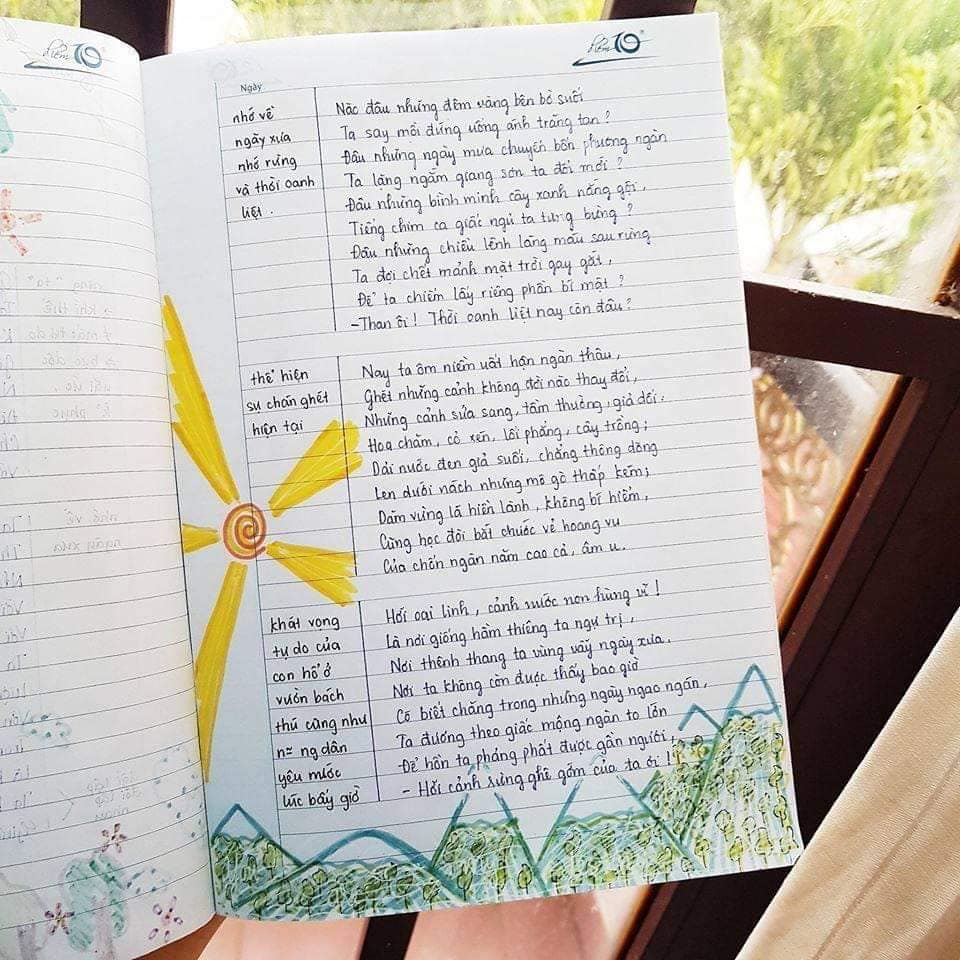 điểm 10
điểm 10
Ngày
nhớ về
ngày xưa
nhớ rừng
và thời oanh
liệt.
Nào đâu những đêm vàng bên bờ suối
Ta say mồi đứng uống ánh trăng tan?
Đâu những ngày mưa chuyển bốn phương ngàn
Ta lặng ngắm giang sơn ta đổi mới?
Đâu những bình minh cây xanh nắng gội,
Tiếng chim ca giấc ngủ ta tưng bừng?
Đâu những chiều lênh láng máu sau rừng
Ta đợi chết mảnh mặt trời gay gắt,
Để ta chiếm lấy riêng phần bí mật?
-Than ôi! Thời oanh liệt nay còn đâu?
thể hiện
sự chán ghét
hiện tại
Nay ta ôm niềm uất hận ngàn thâu,
Ghét những cảnh không đời nào thay đổi,
Những cảnh sửa sang, tầm thường, giả dối.
Hoa chăm, cỏ xén, lối phẳng, cây trồng;
Dải nước đen giả suối, chẳng thông dòng
Len dưới nách những mô gò thấp kém;
Dăm vừng lá hiền lành, không bí hiểm,
Cũng học đòi bắt chước vẻ hoang vu
Của chốn ngàn năm cao cả, âm u.
khát vọng
tự do của
con hổ ở
vườn bách
thú cũng như
n≈ ng dân
yêu nước
lúc bấy giờ
Hỡi oai linh, cảnh nước non hùng vĩ!
Là nơi giống hầm thiêng ta ngự trị,
Nơi thênh thang ta vùng vẫy ngày xưa.
Nơi ta không còn được thấy bao giờ
Có biết chăng trong những ngày ngao ngán,
Ta đương theo giấc mộng ngàn to lớn
Để hồn ta phảng phất được gần ngươi,
- Hỡi cảnh rừng ghê gớm của ta ơi!